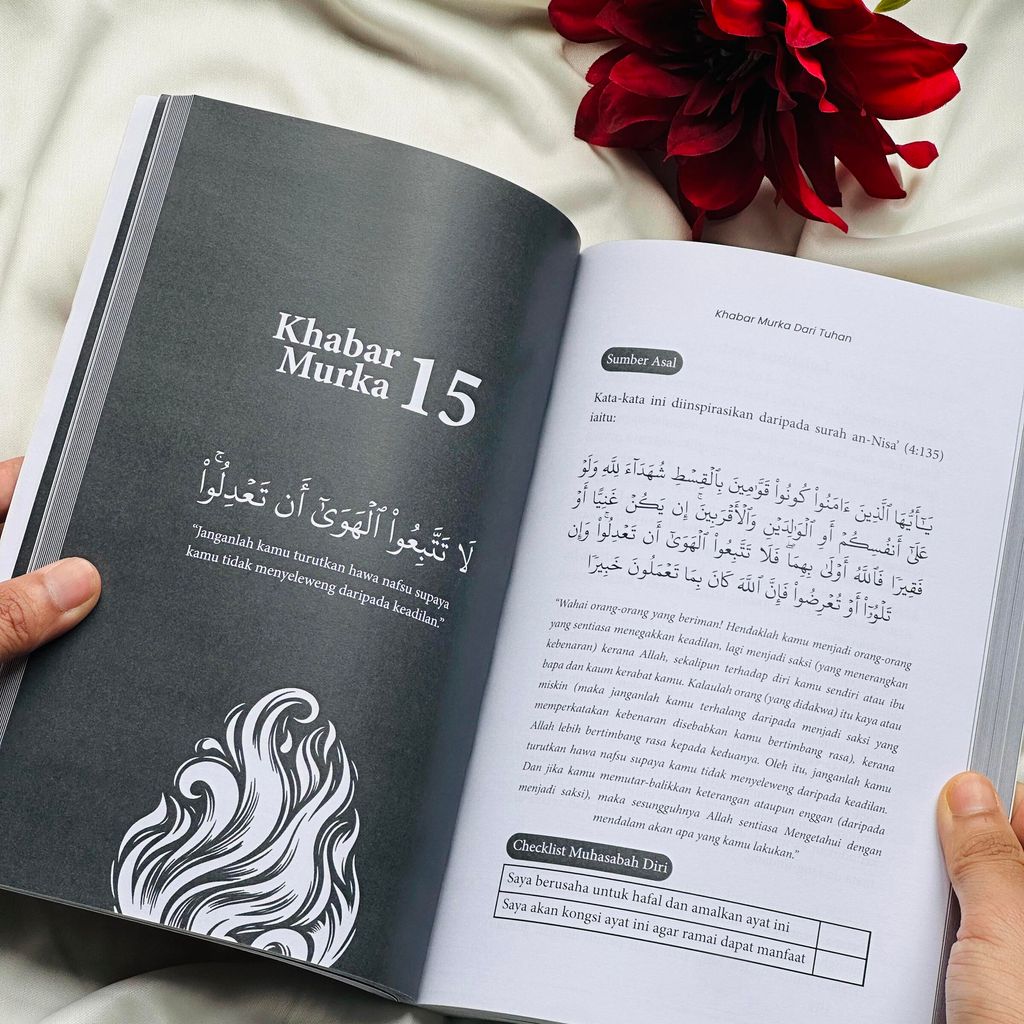 Khabar
Murka 15
لَا تَتَّبِعُوا۟ ٱلْهَوَىٰٓ أَن تَعْدِلُوا۟ۚ
“Janganlah kamu turutkan hawa nafsu supaya
kamu tidak menyeleweng daripada keadilan.”
Khabar Murka Dari Tuhan
Sumber Asal
Kata-kata ini diinspirasikan daripada surah an-Nisa’ (4:135)
iaitu:
يَـٰٓأَيُّهَا ٱلَّذِينَ ءَامَنُوا۟ كُونُوا۟ قَوَّٰمِينَ بِٱلْقِسْطِ شُهَدَآءَ لِلَّهِ وَلَوْ
عَلَىٰٓ أَنفُسِكُمْ أَوِ ٱلْوَٰلِدَيْنِ وَٱلْأَقْرَبِينَۚ إِن يَكُنْ غَنِيًّا أَوْ
فَقِيرًا فَٱللَّهُ أَوْلَىٰ بِهِمَاۖ فَلَا تَتَّبِعُوا۟ ٱلْهَوَىٰٓ أَن تَعْدِلُوا۟ۚ وَإِن
تَلْوُۥٓا۟ أَوْ تُعْرِضُوا۟ فَإِنَّ ٱللَّهَ كَانَ بِمَا تَعْمَلُونَ خَبِيرًا
“Wahai orang-orang yang beriman! Hendaklah kamu menjadi orang-orang
yang sentiasa menegakkan keadilan, lagi menjadi saksi (yang menerangkan
kebenaran) kerana Allah, sekalipun terhadap diri kamu sendiri atau ibu
bapa dan kaum kerabat kamu. Kalaulah orang (yang didakwa) itu kaya atau
miskin (maka janganlah kamu terhalang daripada menjadi saksi yang
memperkatakan kebenaran disebabkan kamu bertimbang rasa). kerana
Allah lebih bertimbang rasa kepada keduanya. Oleh itu, janganlah kamu
turutkan hawa nafsu supaya kamu tidak menyeleweng daripada keadilan.
Dan jika kamu memutar-balikkan keterangan ataupun enggan (daripada
menjadi saksi), maka sesungguhnya Allah sentiasa Mengetahui dengan
mendalam akan apa yang kamu lakukan.”
Checklist Muhasabah Diri
Saya berusaha untuk hafal dan amalkan ayat ini
Saya akan kongsi ayat ini agar ramai dapat manfaat